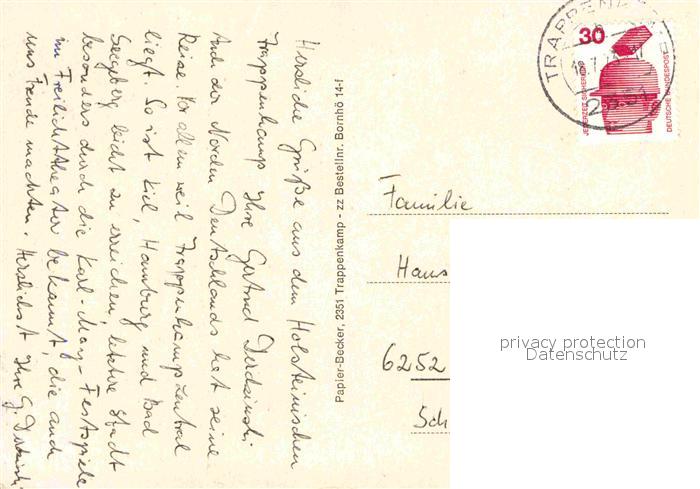 Herzliche Grüße aus dem Holsteinischen
Trappenkamp Ihre Gertrud
Auch der Norden Deutschlands hat seine
Reize. Vor allem weil Trappenkamp zentral
liegt. So ist Kiel, Hamburg und Bad
Segeberg leicht zu erreichen, letztre Stadt
besonders durch die Karl-May-Festspiele
im Freilichttheater bekannt, die auch
uns Freude machten. Herzlichst Ihre G.
Papier-Becker, 2351 Trappenkamp - zz Bestellnr. Bornhö 14-1
TRAPPENKA
2351
30
JEDERZEIT SICHERHEIT
DEUTSCHE BUNDESPOST
Familie
Hans
6252
Sch
privacy protection
Datenschutz